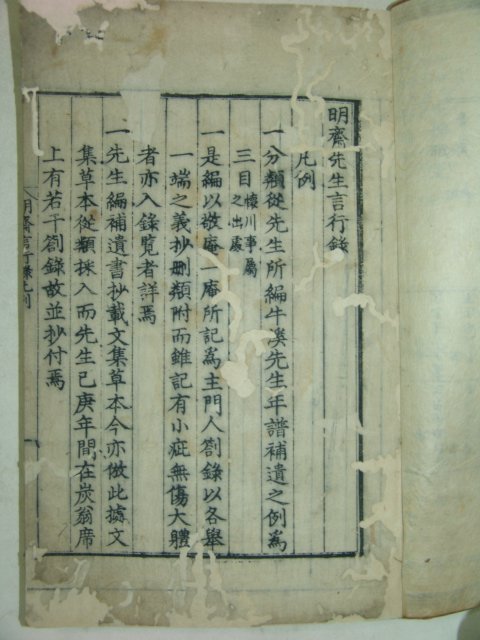 明齋先生言行錄
凡例
一分類從先生所編牛溪先生年譜補遺之例爲
三目懷川事屬之出處
一是編以敬庵一庵所記爲主門人劄錄以各舉
一端之義抄刪類附而雖記有小疵無傷大體
者亦入錄覽者詳焉
一先生編補遺書抄載文集草本今亦倣此據文
集草本從類採入而先生己庚年間在炭翁席
上有若干劄錄故並抄付焉
明齋言行錄凡例